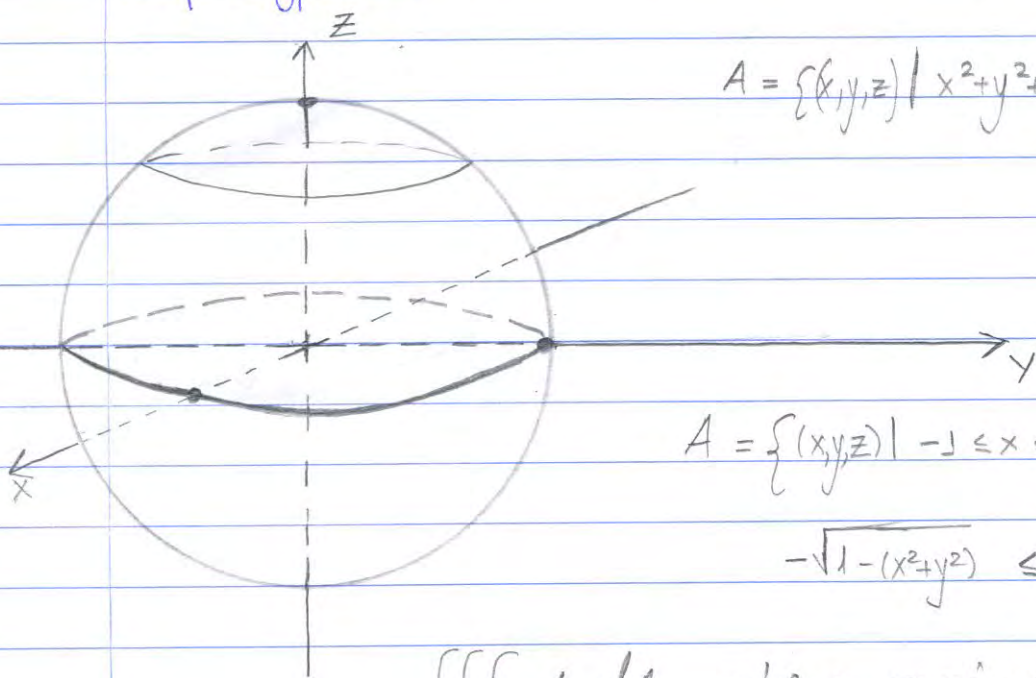 Z
A = {(x,y,z) | x²+y²+
Y
X
A = {(x,y,z) | -1 ≤ x
-√1-(x²+y²) ≤
∭